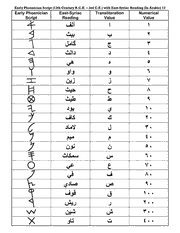 Early Phoenician Script (13th Century B.C.E. – 2nd C.E.) with East-Syriac Reading (in Arabic)
Early Phoenician Script East-Syriac Reading Transliteration Value Numerical Value
𐤀 ا ١
𐤁 بيث ب ٢
𐤂 گامل ج ٣
𐤃 دالث د ٤
𐤄 هي ٥
𐤅 واو و ٦
𐤆 زين ز ٧
𐤇 حيث ح ٨
𐤈 طيث ط ٩
𐤉 ي ١٠
𐤊 ك ٢٠
𐤋 لاماد ل ٣٠
𐤌 ميم م ٤٠
𐤍 نون ن ٥٠
𐤎 سمكاث س ٦٠
𐤏 ع ٧٠
𐤐 ف ٨٠
𐤑 صادي ص ٩٠
𐤒 قوف ق ١٠٠
𐤓 ريش ر ٢٠٠
𐤔 شين ش ٣٠٠
𐤕 تاو ت ٤٠٠